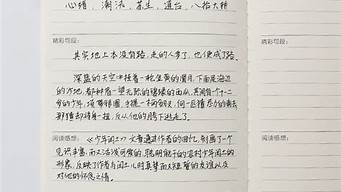 心绪、潮汛、萧生、道台、八抬大轿
精彩句段:
其实地上本没有路,走的人多了,也便成了路.
深蓝的天空中挂着一轮金黄的圆月,下面是海边
的沙地,都种着一望无际的碧绿的西瓜,其间有一个十二
岁的少年,项带银圈,手捏一柄钢叉,向一匹猹尽力的刺去
那猹却将身一扭,反从他的胯下逃走了.
阅读感想: 《少年闰土》一文普通过作者的回忆,刻画了一个
见识丰富而又活泼可爱的,聪明能干的农村少年闰土的
形象,反映了作者与闰土儿时真挚而又短暂的友谊以及
对他的怀念之情.
精彩句段:
阅读感想: